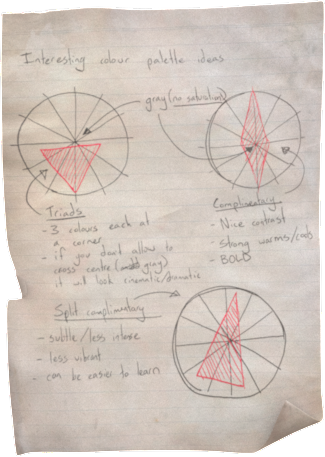 Interesting colour palette ideas
gray (no saturation)
Triads
- 3 colours each at
a corner
- if you don't allow to
cross centre ( gray)
it will look cinematic/dramatic
Complimentary
- Nice contrast
- Strong warms/cools
- BOLD
Split complimentary
- subtle/less intense
- less vibrant
- can be easier to learn